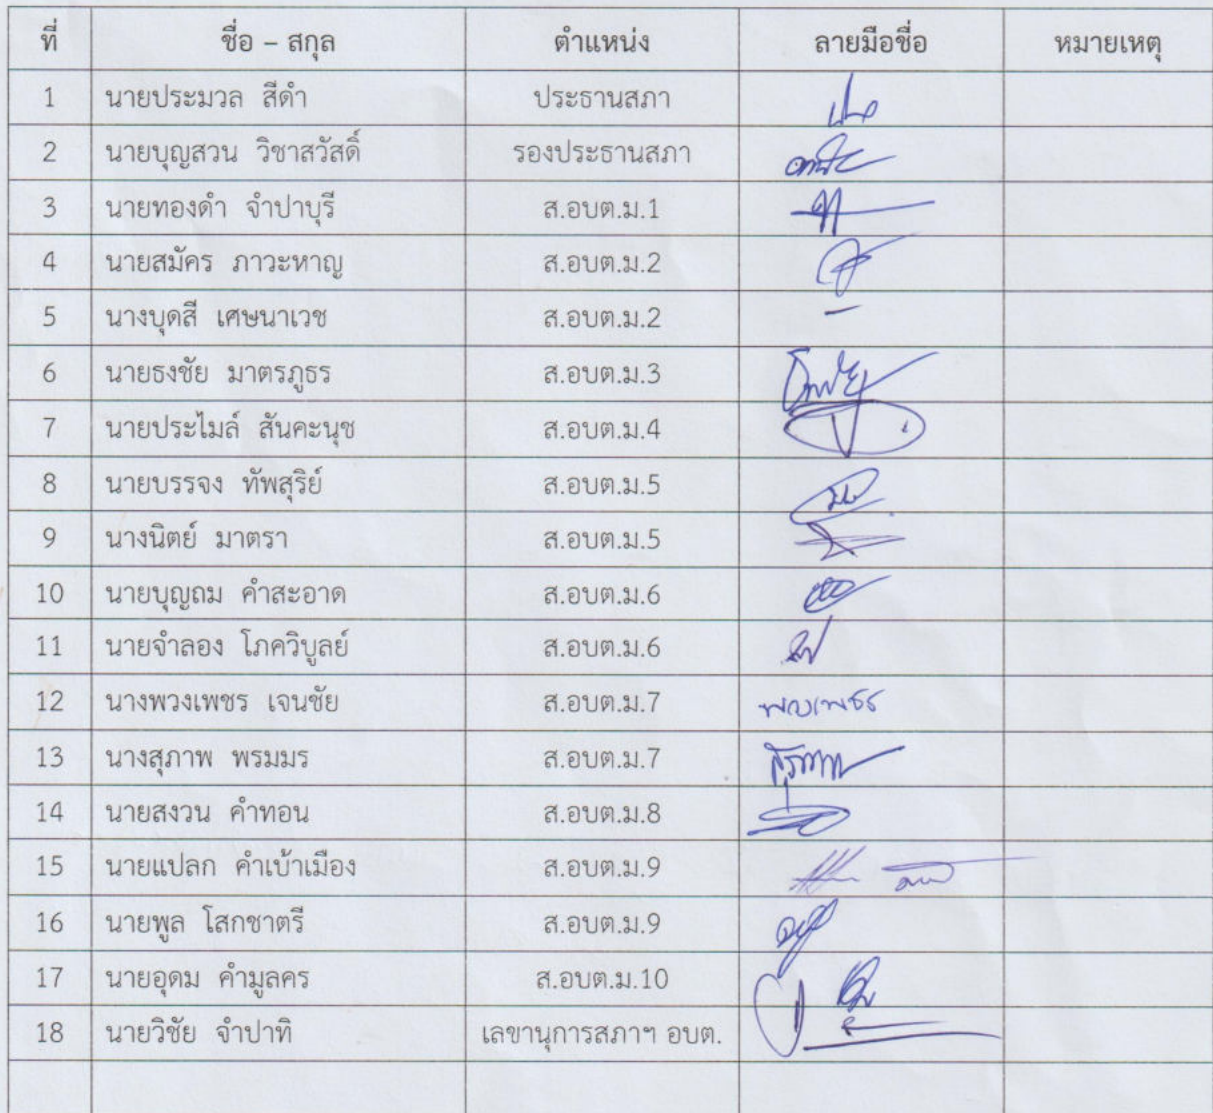 ที่ ชื่อ – สกุล ตำแหน่ง ลายมือชื่อ หมายเหตุ
1 นายประมวล สีดำ ประธานสภา
2 นายบุญสวน วิชาสวัสดิ์ รองประธานสภา
3 นายทองดำ จำปาบุรี ส.อบต.ม.1
4 นายสมัคร ภาวะหาญ ส.อบต.ม.2
5 นางบุดสี เศษนาเวช ส.อบต.ม.2 –
6 นายธงชัย มาตรภูธร ส.อบต.ม.3
7 นายประไมล์ สันคะนุช ส.อบต.ม.4
8 นายบรรจง ทัพสุริย์ ส.อบต.ม.5
9 นางนิตย์ มาตรา ส.อบต.ม.5
10 นายบุญถม คำสะอาด ส.อบต.ม.6
11 นายจำลอง โภควิบูลย์ ส.อบต.ม.6
12 นางพวงเพชร เจนชัย ส.อบต.ม.7 พวงเพชร
13 นางสุภาพ พรมมร ส.อบต.ม.7
14 นายสงวน คำทอน ส.อบต.ม.8
15 นายแปลก คำเบ้าเมือง ส.อบต.ม.9
16 นายพูล โสกชาตรี ส.อบต.ม.9
17 นายอุดม คำมูลคร ส.อบต.ม.10
18 นายวิชัย จำปาทิ เลขานุการสภาฯ อบต.